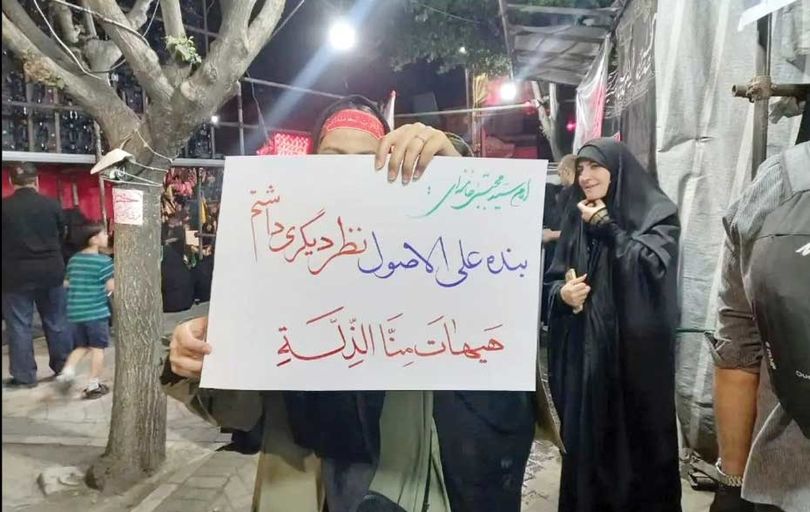 امام سید مجتبی خامنه‌ای:
بنده علی الاصول نظر دیگری داشتم
هَیهاتَ مِنَّا الذِّلَّةِ